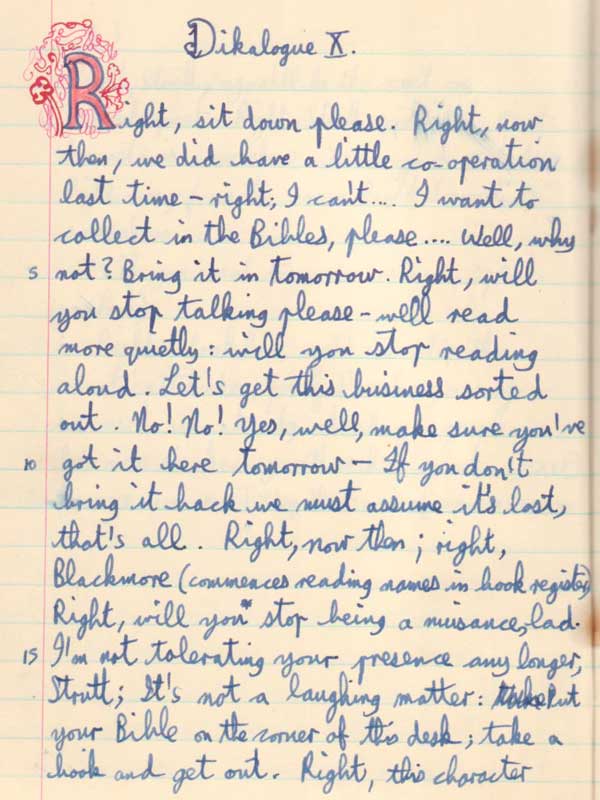 Dikalogue X.
Right, sit down please. Right, now
then, we did have a little co-operation
last time – right; I can't.... I want to
collect in the Bibles, please.... Well, why
5 not? Bring it in tomorrow. Right, will
you stop talking please – well read
more quietly: will you stop reading
aloud. Let's get this business sorted
out. No! No! Yes, well, make sure you've
10 got it here tomorrow – If you don't
bring it back we must assume it's lost,
that's all. Right, now then; right,
Blackmore (commences reading names in book register)
Right, will you* stop being a nuisance, lad.
15 I'm not tolerating your presence any longer,
Strutt; It's not a laughing matter: Put
your Bible on the corner of this desk; take a
book and get out. Right, this character